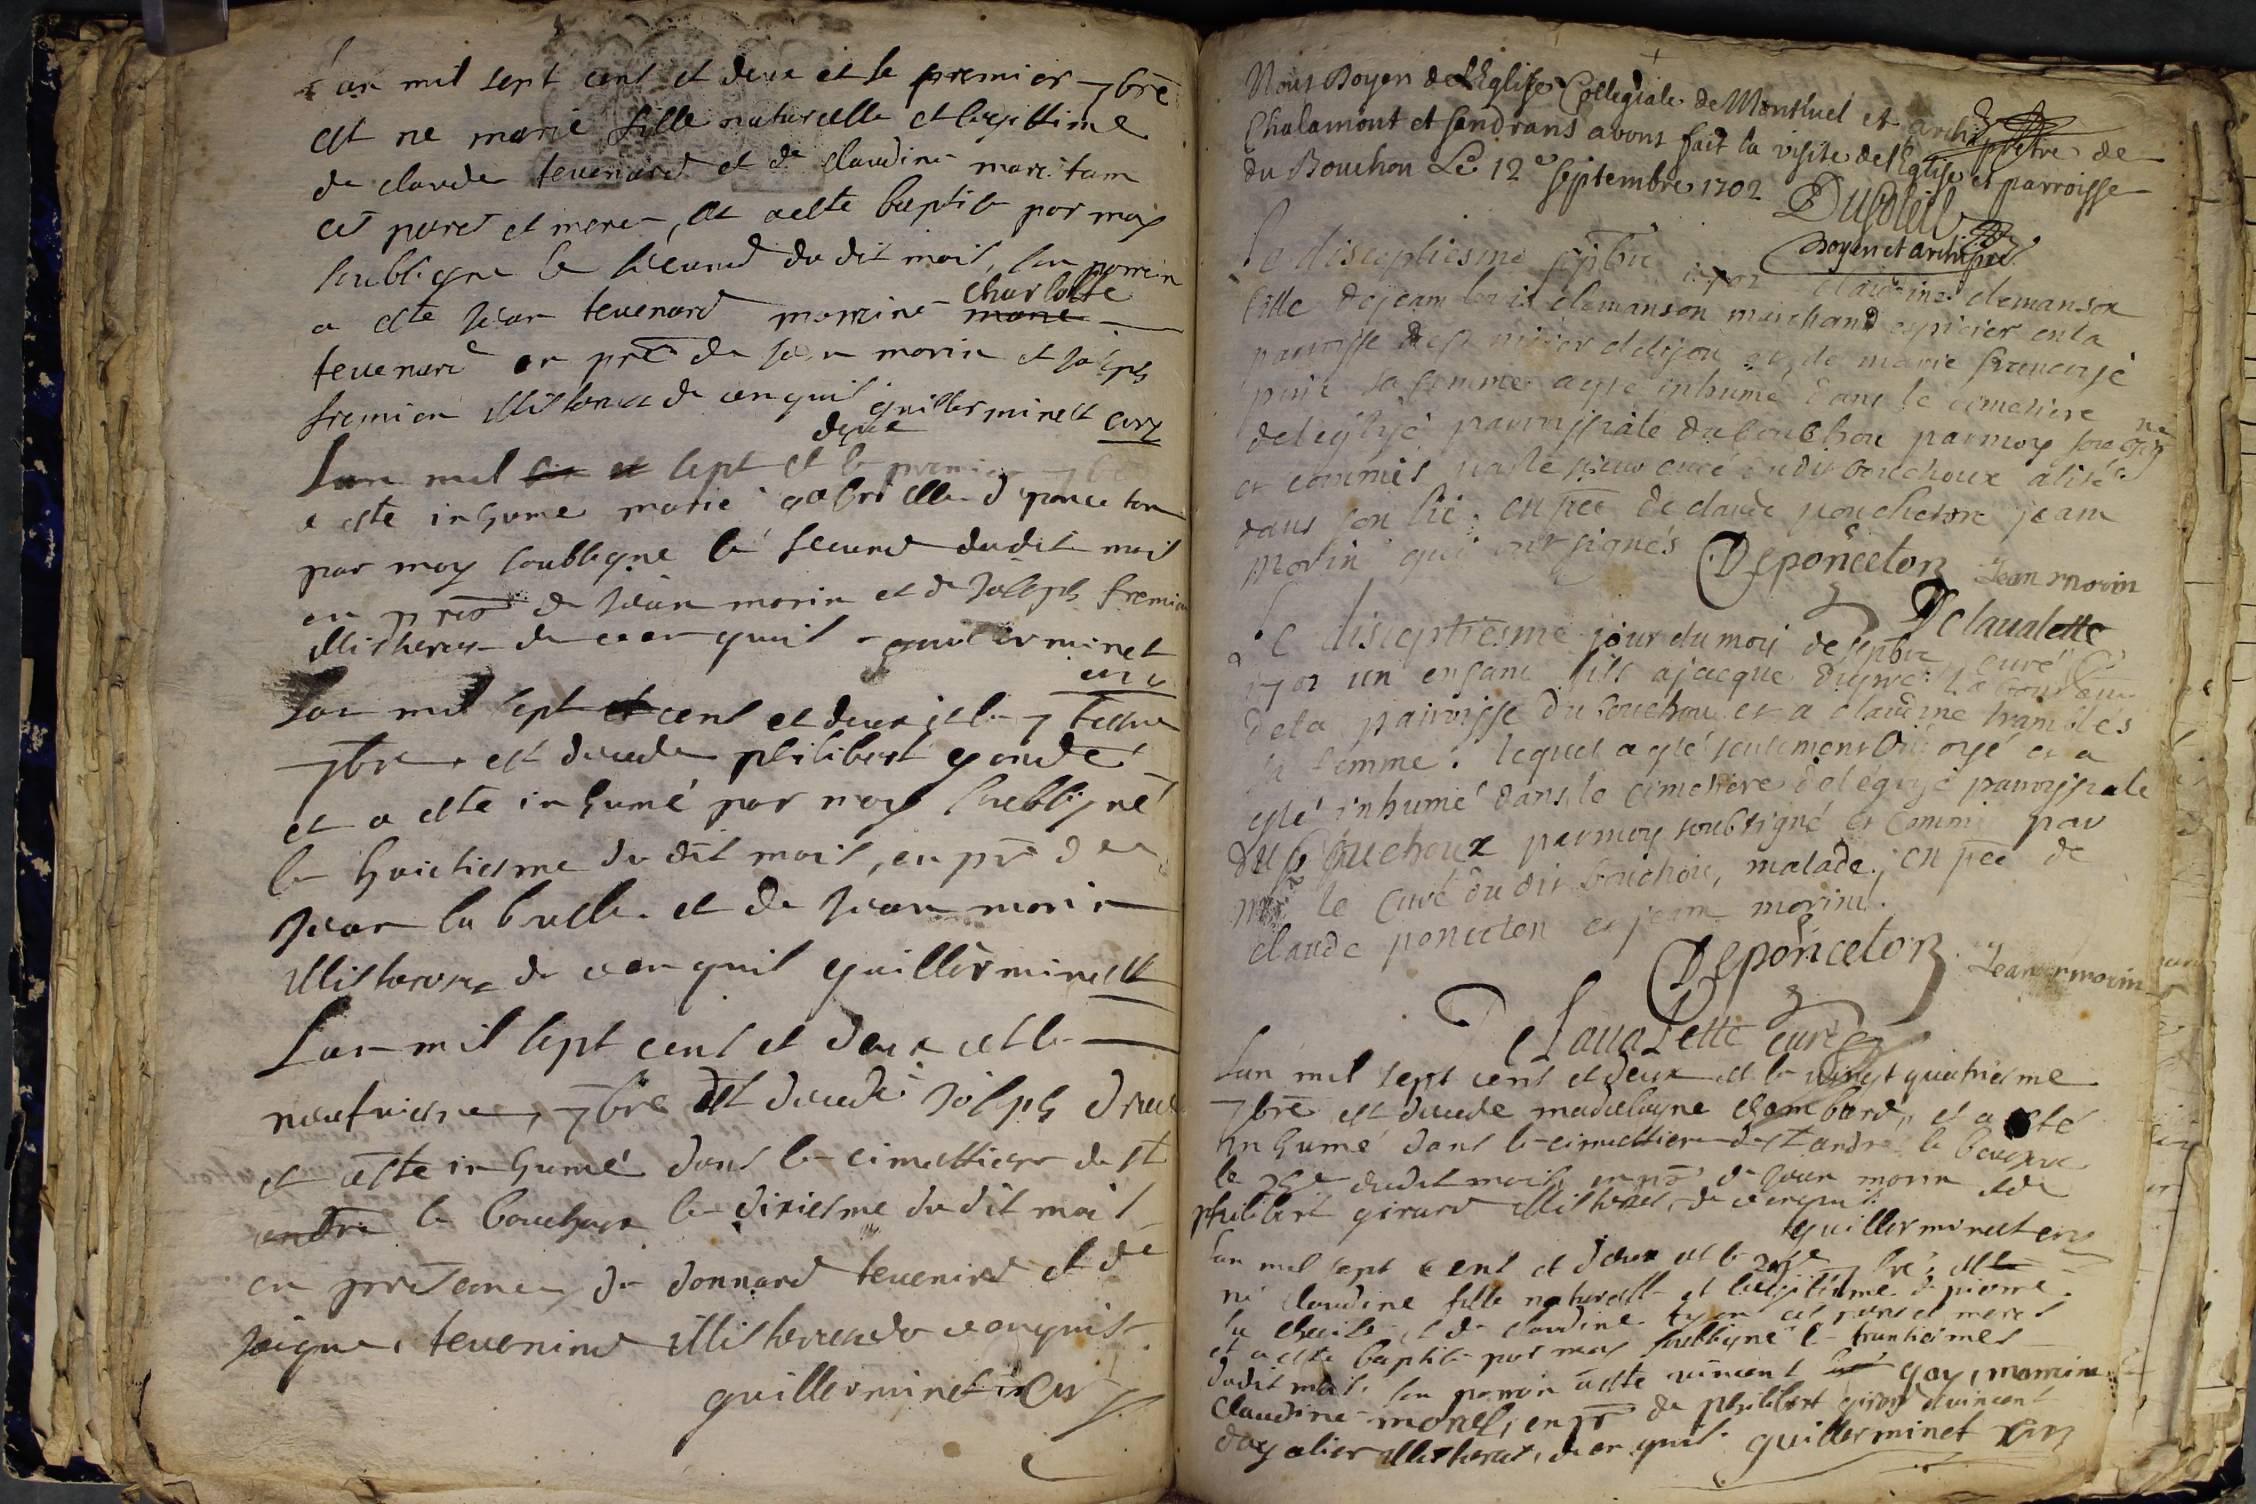 Lan mil sept cent et deux et le premier 7bre
est ne marie fille naturelle et legittime
de claude tevenard et de claudine
ces peres et meres, et a este baptisé par moy
soubsigne le second du dit mois, son parrin
a este Jean tevenard marrine charlotte
tevenard en pree de Jean morin et Joseph
fremion illitteres de ce enquis guillerminet cure
deux
Lan mil sept et le premier 7bre
a este inhume marie gabrielle deponceton
par moy soubsigne le second dudit mois
en pres de Jean morin et de Joseph fremion
illitteres de ce enquis guillerminet
curé
Lan mil sept cent et deux et le
7bre est decede philibert gonde
et a este inhumé par moy soubsigné
le huictiesme du dit mois, en pre de
Jean la brelle et de Jean morin
illitteres de ce enquis guillerminet
Lan mil sept cent et deux et le
neufviesme 7bre est decedé Joseph
et a este inhumé dans le cimettiere de st
andre le bouchoux le dixiesme du dit mois
en presence de donnard tevenard et de
tevenard illitteres de ce enquis
guillerminet cure
Nous Doyen de l'Eglise Collegiale de Montluel et archiprêtre de
Chalamont et Sandrans avons fait la visite de l'Eglise et parroisse
du Bouchou Le 12e septembre 1702 Dusoleil
Doyen et archipre
Le diseptiesme septbre 1702 claudine clemanson
fille de jean clemanson marchand espicier en la
paroisse de st nisier de lijon et de marie francoise
sa femme a esté inhumé dans le cimetiere
de leglise paroissiale du bouchou par moy soubsigné
et commis par le sieur curé dudit bouchoux alité
dans son lit, en pce de claude poncheton jean
morin qui ont signés Deponceton Jean morin
Delavalette
curé
Le diseptiesme jour du mois de septbre
1702 un enfant fils a jacque
de la paroisse du bouchou et a claudine tramblés
sa femme, lequel a esté seulement ondoyé et a
esté inhumé dans le cimetiere de leglise paroissiale
du bouchoux par moy soubsigné et commis par
mr le Curé du dit bouchou, malade, en pce de
claude ponceton et jean morin.
Deponceton Jean morin
Delavalette curé
Lan mil sept cent et deux et le vingt quatriesme
7bre est decede madelayne chambard, et a esté
inhumé dans le cimettiere de st andre le bouchoux
le 25e dudit mois en pre de Jean morin et de
philibert girard illitteres, de ce enquis
guillerminet cure
Lan mil sept cent et deux et le 7bre, est
né claudine fille naturelle et legitime de pierre
et de claudine ces peres et meres
et a este baptisé par moy soubsigné le trantiesme
dudit mois, son parrin a este vincent gay, marrine
claudine morel, en pre de philibert girard et vincent
illitteres, de ce enquis guillerminet cure